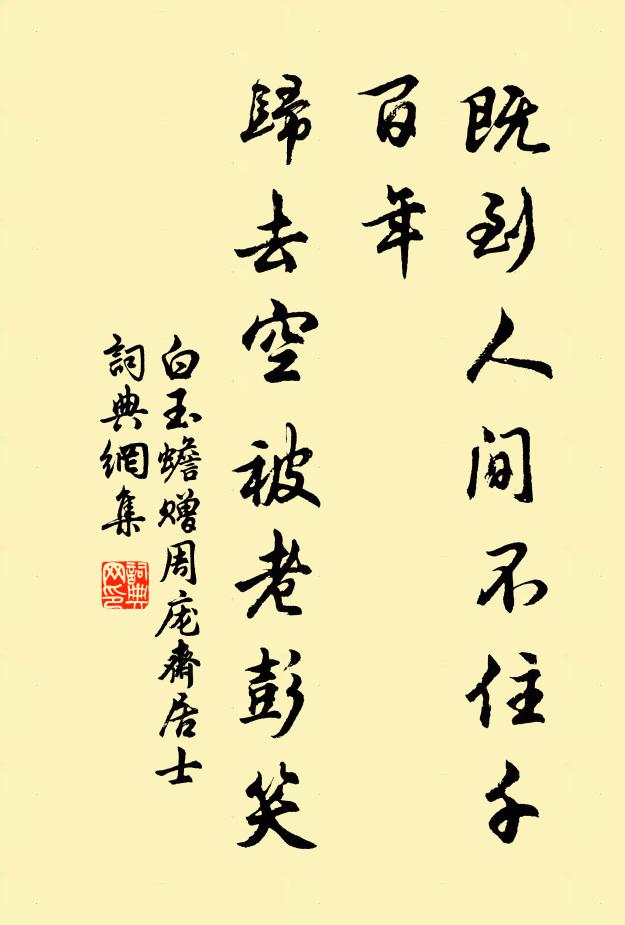 既到人間不住千
百年
歸去空被老彭笑
白玉蟾贈周庞齋居士
詞典網集
詞典網印